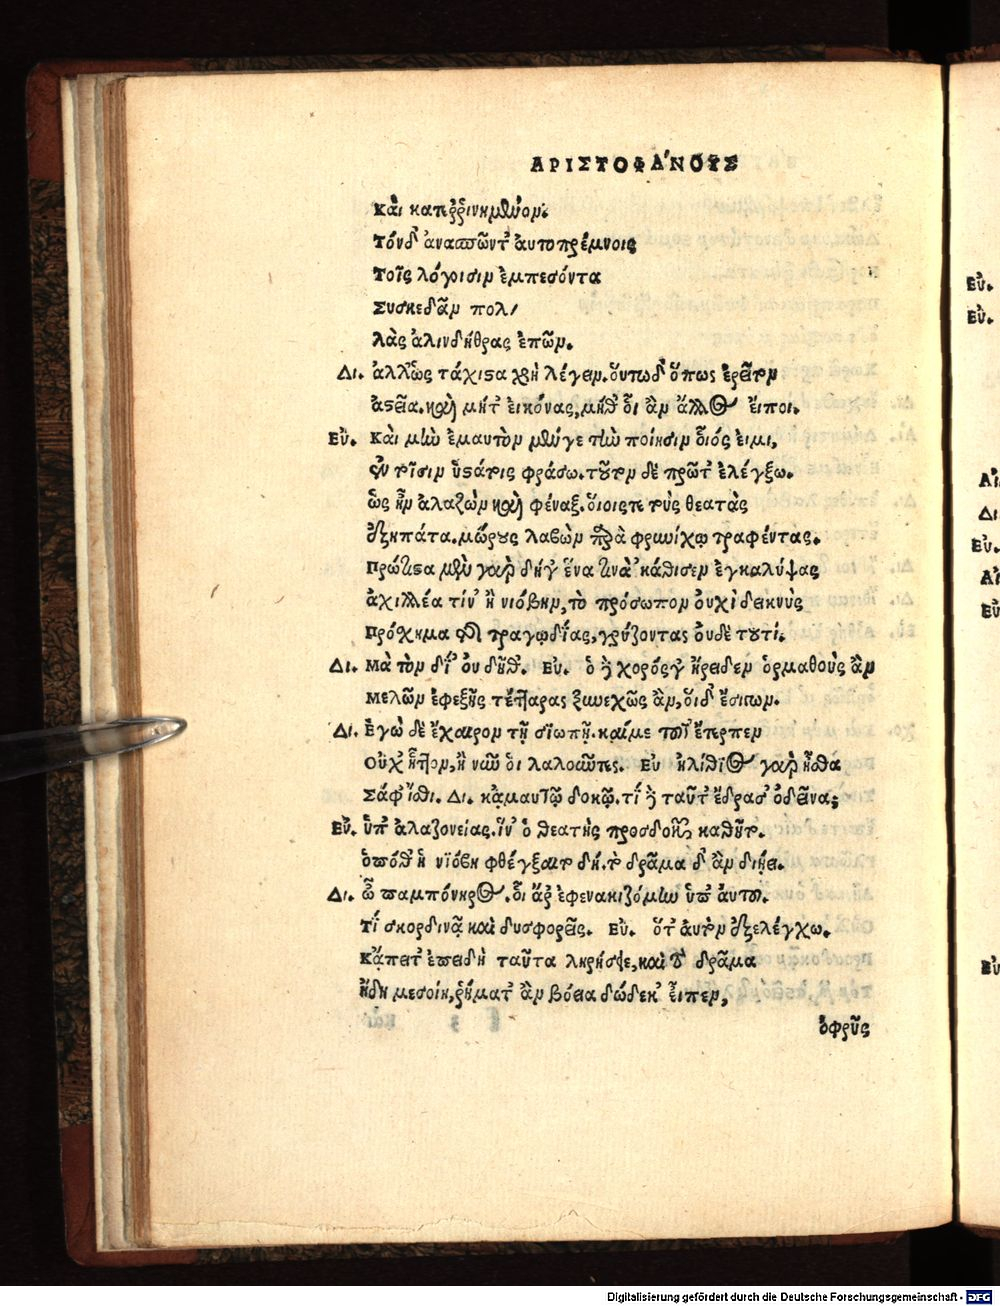 ΑΡΙΣΤΟΦΑ΄ΝΟΥΣ
Καὶ κατερρινημένον.
Τόνδ' ἀνασπῶντ' ἀυτοπρέμνοις
Τοῖς λόγοισιν ἐμπεσόντα
Συσκεδᾶν πολ/
λὰς ἀλινδήθρας ἐπῶν.
Δι. ἀλλ' ὡς τάχιστα χρὴ λέγειν. ὅυτω δ' ὅπως ἐρεῖτον
ἀστεῖα. καὶ μήτ' ἐικόνας, μήθ' ὅι ἂν ἄλλος ἔιποι.
Ευ. Καὶ μὴν ἐμαυτὸν μέν γε τὴν ποίησιν ὅιός ἐιμι,
ἐν τοῖσιν ὑστάτοις φράσω. τοῦτον δὲ πρῶτ' ἐλέγξω.
ὡς ἦν ἀλαζὼν καὶ φέναξ. ὅιοις τε τοὺς θεατὰς
ἐξηπάτα. μώρους λαβὼν παρὰ φρυνίχῳ τραφέντας.
Πρώτιστα μὲν γὰρ δήγ' ἕνα τινὰ κάθισεν ἐγκαλύψας
ἀχιλλέα τίν' ἢ νιόβην, τὸ πρόσωπον ὀυχὶ δεικνὺς
Πρόσχημα τῆς τραγῳδίας, γρύζοντας ὀυδὲ τουτί.
Δι. Μὰ τὸν δί' ὀυ δῆθ'. Ευ. ὁ δὲ χορός γ' ἤρειδεν ὁρμαθοὺς ἂν
Μελῶν ἐφεξῆς τέτταρας ξυνεχῶς ἂν, ὅιδ' ἐσίγων.
Δι. Ἐγὼ δὲ ἔχαιρον τῇ σιωπῇ. καί με τοῦτ' ἔτερπεν
Οὐχ ἧττον, ἢ νῦν ὁι λαλοῦντες. Ευ ἠλίθιος γὰρ ἦσθα
Σάφ' ἴσθι. Δι. κἀμαυτῷ δοκῶ. τί δὲ ταῦτ' ἔδρασ' ὁδεῖνα;
Ευ. ὑπ' ἀλαζονείας. ἵν' ὁ θεατὴς προσδοκῶν καθῆτο.
ὁπόθ' ἡ νϊόβη φθέγξαιτο δή. τὸ δρᾶμα δ' ἂν διῄει.
Δι. ὦ παμπόνηρος. ὅι ἄρ' ἐφενακιζόμην ὑπ' ἀυτοῦ.
Τί σκορδινᾷ καὶ δυσφορεῖς. Ευ. ὅτ' ἀυτὸν ἐξελέγχω.
Κἄπειτ' ἐπειδὴ ταῦτα ληρήσειε, καὶ τὸ δρᾶμα
ἤδη μεσοίη, ῥήματ' ἂν βόεια δώδεκ' ἔιπεν,
ὀφρῦς
Ευ.
Ευ.
Δι
Ευ.
Ευ
Digitalisierung gefördert durch die Deutsche Forschungsgemeinschaft - DFG